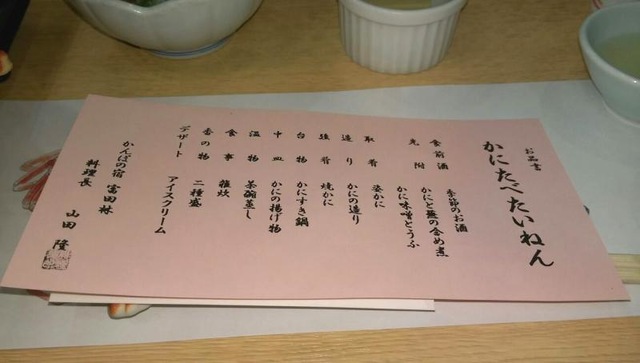 お品書
かにたべたいねん
食前酒 季節のお酒
先附 かにと蕪の含め煮
かに味噌とうふ
取肴 姿かに
造り かにの造り
強肴 焼かに
台物 かにすき鍋
中皿 かにの揚げ物
温物 茶碗蒸し
食事 雑炊
香の物 二種盛
デザート アイスクリーム
かんぽの宿 富田林
料理長 山田 隆